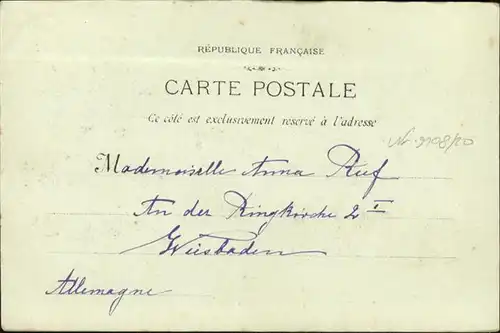 RÉPUBLIQUE FRANÇAISE
CARTE POSTALE
Ce côté est exclusivement réservé à l'adresse
Nr. 9108/20
Mademoiselle Anna Ruf
An der Ringkirche 2 I
Wiesbaden
Allemagne